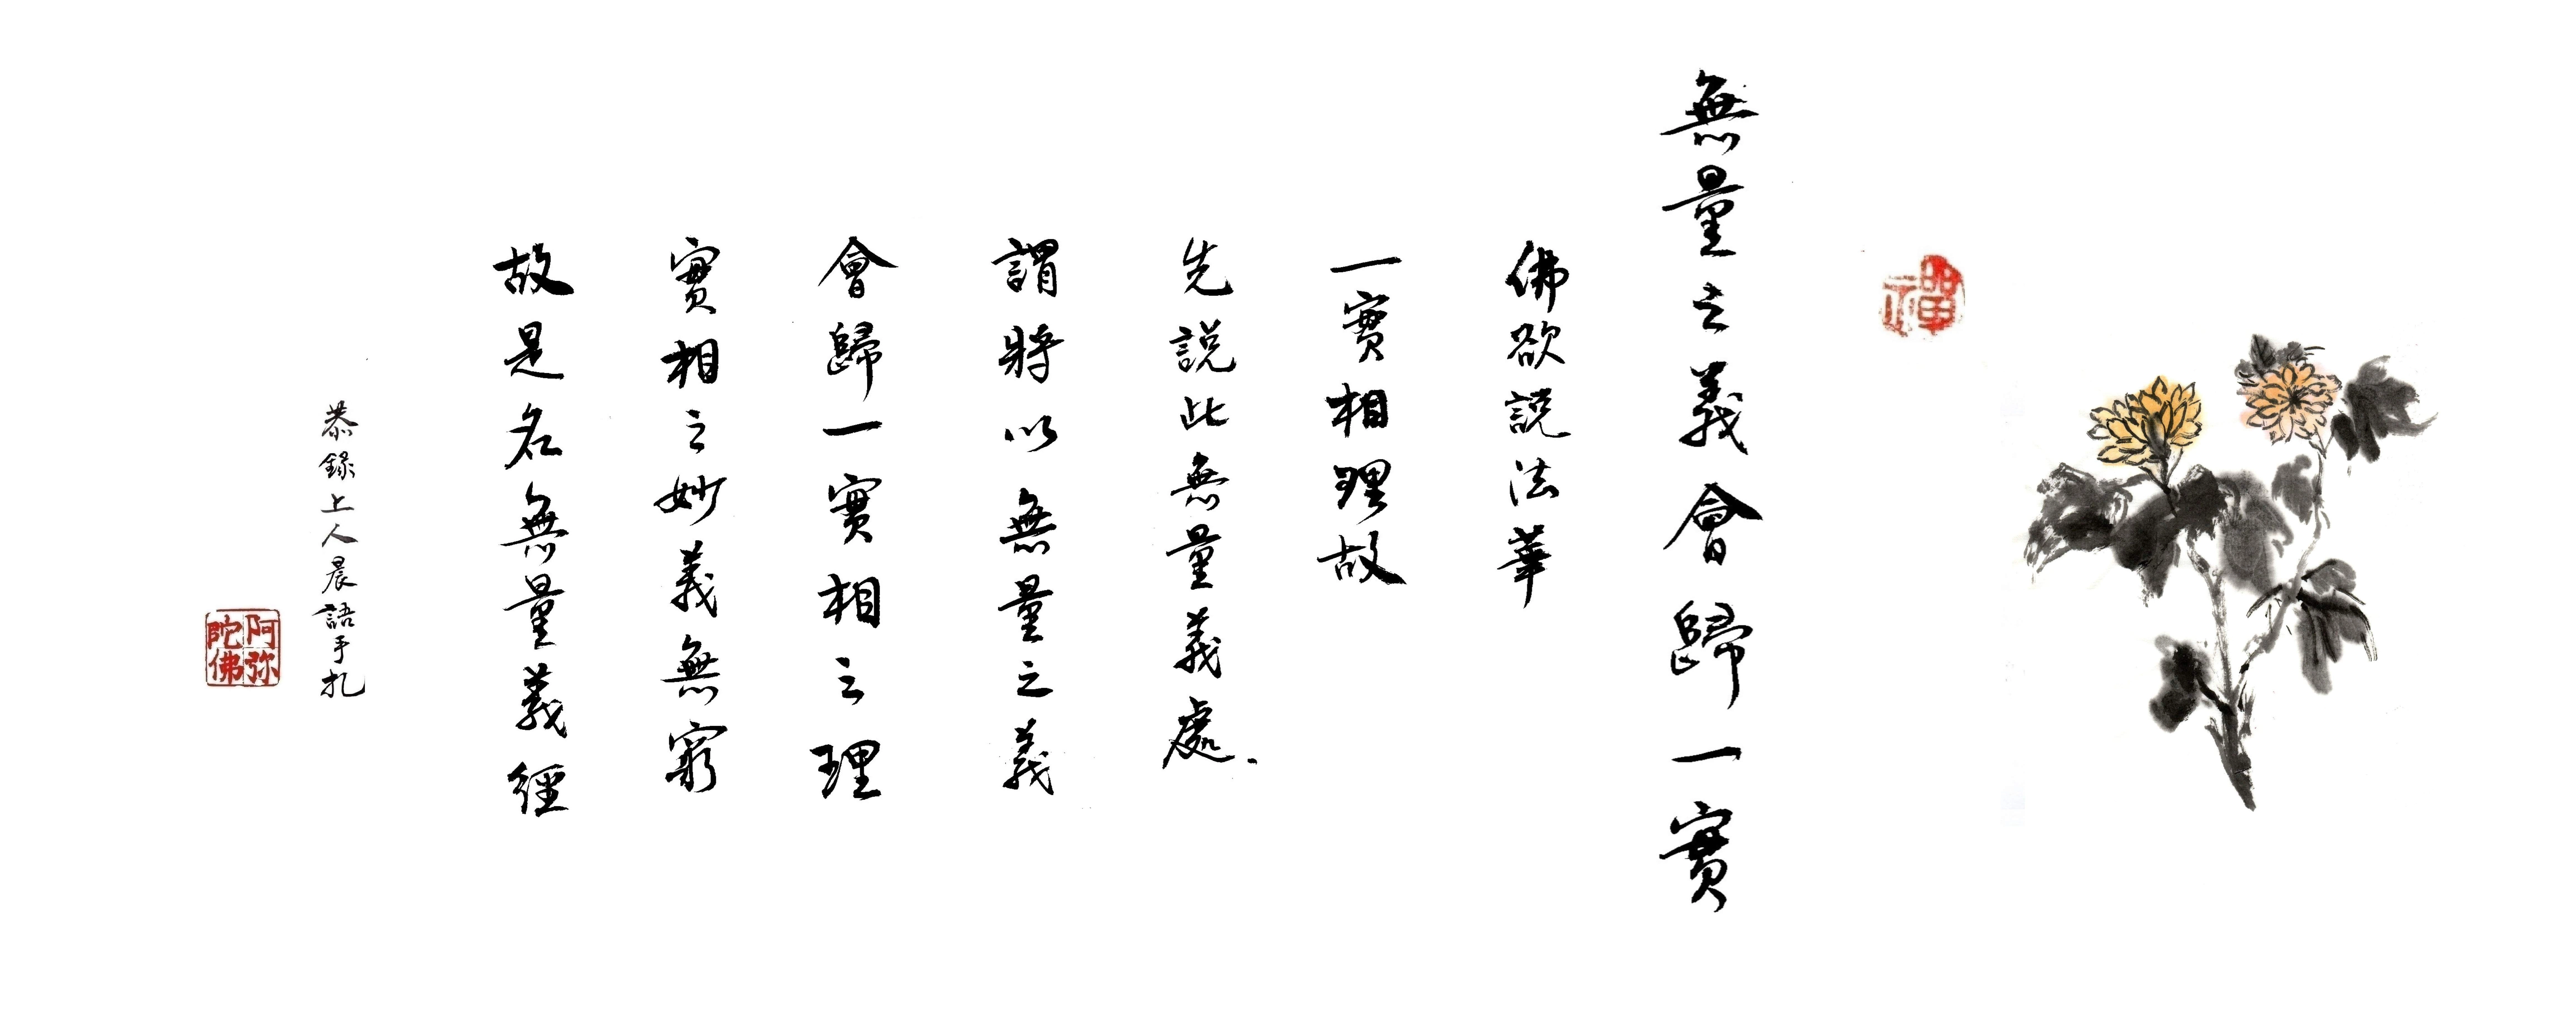 禪
無量之義會歸一實
佛欲說法華
一實相理故
先說此無量義處.
謂將以無量之義
會歸一實相之理
實相之妙義無窮
故是名無量義經
恭錄上人晨語手札
阿弥
陀佛